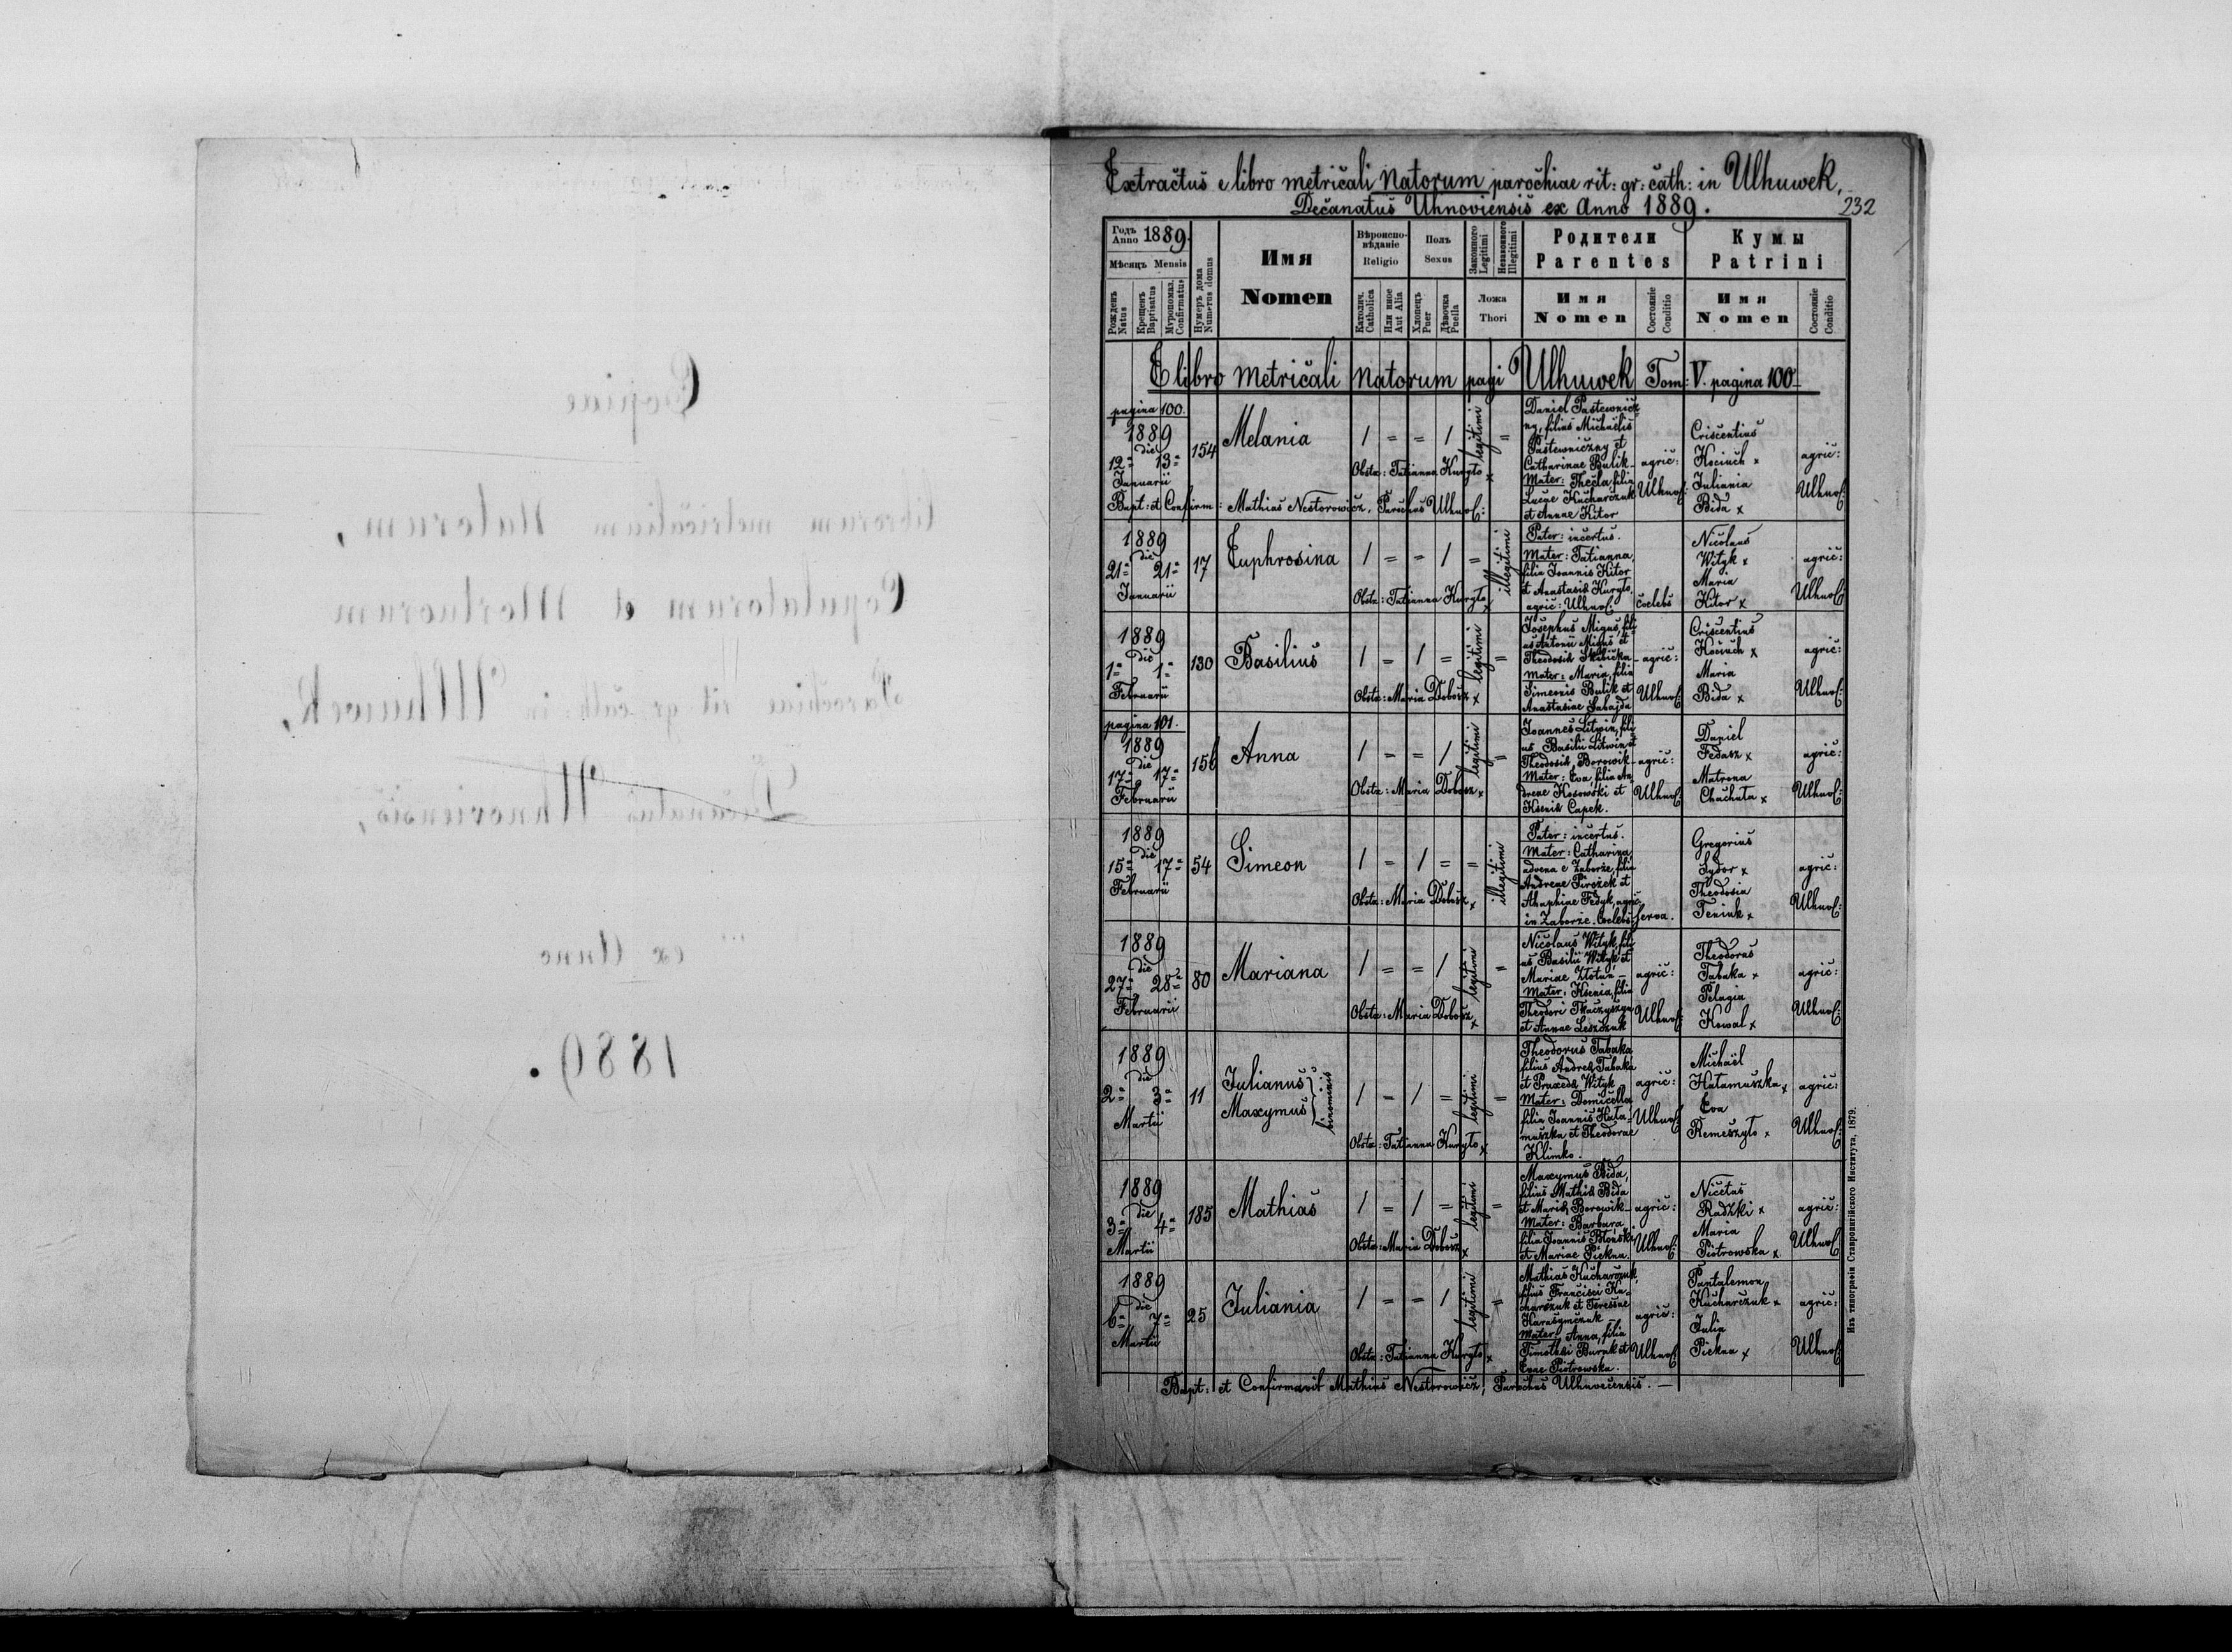 Copiae
librorum metricalium Natorum,
Copulatorum et Mortuorum
Parochiae rit. gr. cath: in Ulhuwek,
Decanatus Uhnoviensis,
ex Anno
1889.
Extractus e libro metricali Natorum parochiae rit: gr: cath: in Ulhuwek,
Decanatus Uhnoviensis ex Anno 1889.
232
Годъ Anno 1889.
Мѣсяцъ Mensis
Рожденъ Natus
Крещенъ Baptisatus
Мѵропомаз. Confirmatus
Нумеръ дома Numerus domus
Имя
Nomen
Вѣроиспо-
вѣданіе
Religio
Католич. Catholica
Или иное Aut Alia
Полъ
Sexus
Хлопецъ Puer
Дѣвочка Puella
Законного Legitimi
Незаконного Illegitimi
Ложа
Thori
Родители
Parentes
Имя
Nomen
Состояніе Conditio
Кумы
Patrini
Имя
Nomen
Состояніе Conditio
E libro metricali natorum pagi Ulhuwek Tom: V. pagina 100
pagina 100.
1889
die
12= 13=
Januarii
154
Melania
1 = = 1 legitimi =
Obstx: Tatianna Kuryło x
Daniel Pastewnicz-
ny, filius Michaelis
Pastewniczny et
Catharinae Bulik-
Mater: Thecla, filia
Lucae Kucharczuk
et Annae Kitor
agric:
Ulhuv:
Criscentius
Kociuch x
Juliania
Bida x
agric:
Ulhuv:
Bapt: et Confirm: Mathias Nestorowicz, Parochus Ulhuv:
1889
die
21= 21=
Januarii
17
Euphrosina
1 = = 1 = illegitimi
Obstx: Tatianna Kuryło x
Pater: incertus.
Mater: Tatianna,
filia Joannis Kitor
et Anastasiae Kuryło,
agric: Ulhuv:
coelebs
Nicolaus
Wityk x
Maria
Kitor x
agric:
Ulhuv:
1889
die
1= 1=
Februarii
130
Basilius
1 = 1 = legitimi =
Obstx: Maria Dobosz x
Josephus Migus, fili-
us Antonii Migus et
Theodosiae Skibicka-
Mater: Maria, filia
Simeonis Bulik et
Anastasiae Sahajda
agric:
Ulhuv:
Criscentius
Kociuch x
Maria
Bida x
agric:
Ulhuv:
pagina 101.
1889
die
17= 17=
Februarii
156
Anna
1 = = 1 legitimi =
Obstx: Maria Dobosz x
Joannes Litwin, fili-
us Basilii Litwin et
Theodosiae Borowik-
Mater: Eva, filia An-
dreae Kosowski et
Kseniae Capek.
agric:
Ulhuv:
Daniel
Fedasz x
Matrona
Chachuła x
agric:
Ulhuv:
1889
die
15= 17=
Februarii
54
Simeon
1 = 1 = = illegitimi
Obstx: Maria Dobosz x
Pater: incertus.
Mater: Catharina,
advena e Zaborze, filia
Andreae Pirożek et
Ahaphiae Fedyk, agric:
in Zaborze. Coelebs
serva.
Gregorius
Sydor x
Theodosia
Teniuk x
agric:
Ulhuv:
1889
die
27= 28=
Februarii
80
Mariana
1 = = 1 legitimi =
Obstx: Maria Dobosz x
Nicolaus Wityk, fili-
us Basilii Wityk et
Mariae Złotan-
Mater: Ksenia, filia
Theodori Tkaczyszyn
et Annae Leszczuk
agric:
Ulhuv:
Theodorus
Tabaka x
Pelagia
Kowal x
agric:
Ulhuv:
1889
die
2= 3=
Martii
11
Julianus
Maxymus
binominis
1 = 1 = legitimi =
Obstx: Tatianna Kuryło x
Theodorus Tabaka
filius Andreae Tabaka
et Praxedae Wityk
Mater: Domicella
filia Joannis Hała-
muszka et Theodorae
Klimko.
agric:
Ulhuv:
Michaël
Hałamuszka x
Eva
Remeszyło x
agric:
Ulhuv:
1889
die
3= 4=
Martii
185
Mathias
1 = 1 = legitimi =
Obstx: Maria Dobosz x
Maxymus Bida,
filius Mathiae Bida
et Mariae Borowik-
Mater: Barbara,
filia Joannis Błoński
et Mariae Piekna.
agric:
Ulhuv:
Nicetas
Radzki x
Maria
Piotrowska x
agric:
Ulhuv:
1889
die
6= 7=
Martii
25
Juliania
1 = = 1 legitimi =
Obstx: Tatianna Kuryło x
Mathias Kucharczuk,
filius Francisci Ku-
charczuk et Teressae
Harasymczuk-
Mater: Anna, filia
Timothei Burak et
Evae Piotrowska.
agric:
Ulhuv:
Pantalemon
Kucharczuk x
Julia
Piekna x
agric:
Ulhuv:
Bapt: et Confirmavit Mathias Nestorowicz, Parochus Ulhuvecensis.
Изъ типографіи Ставропигійского Института, 1879.